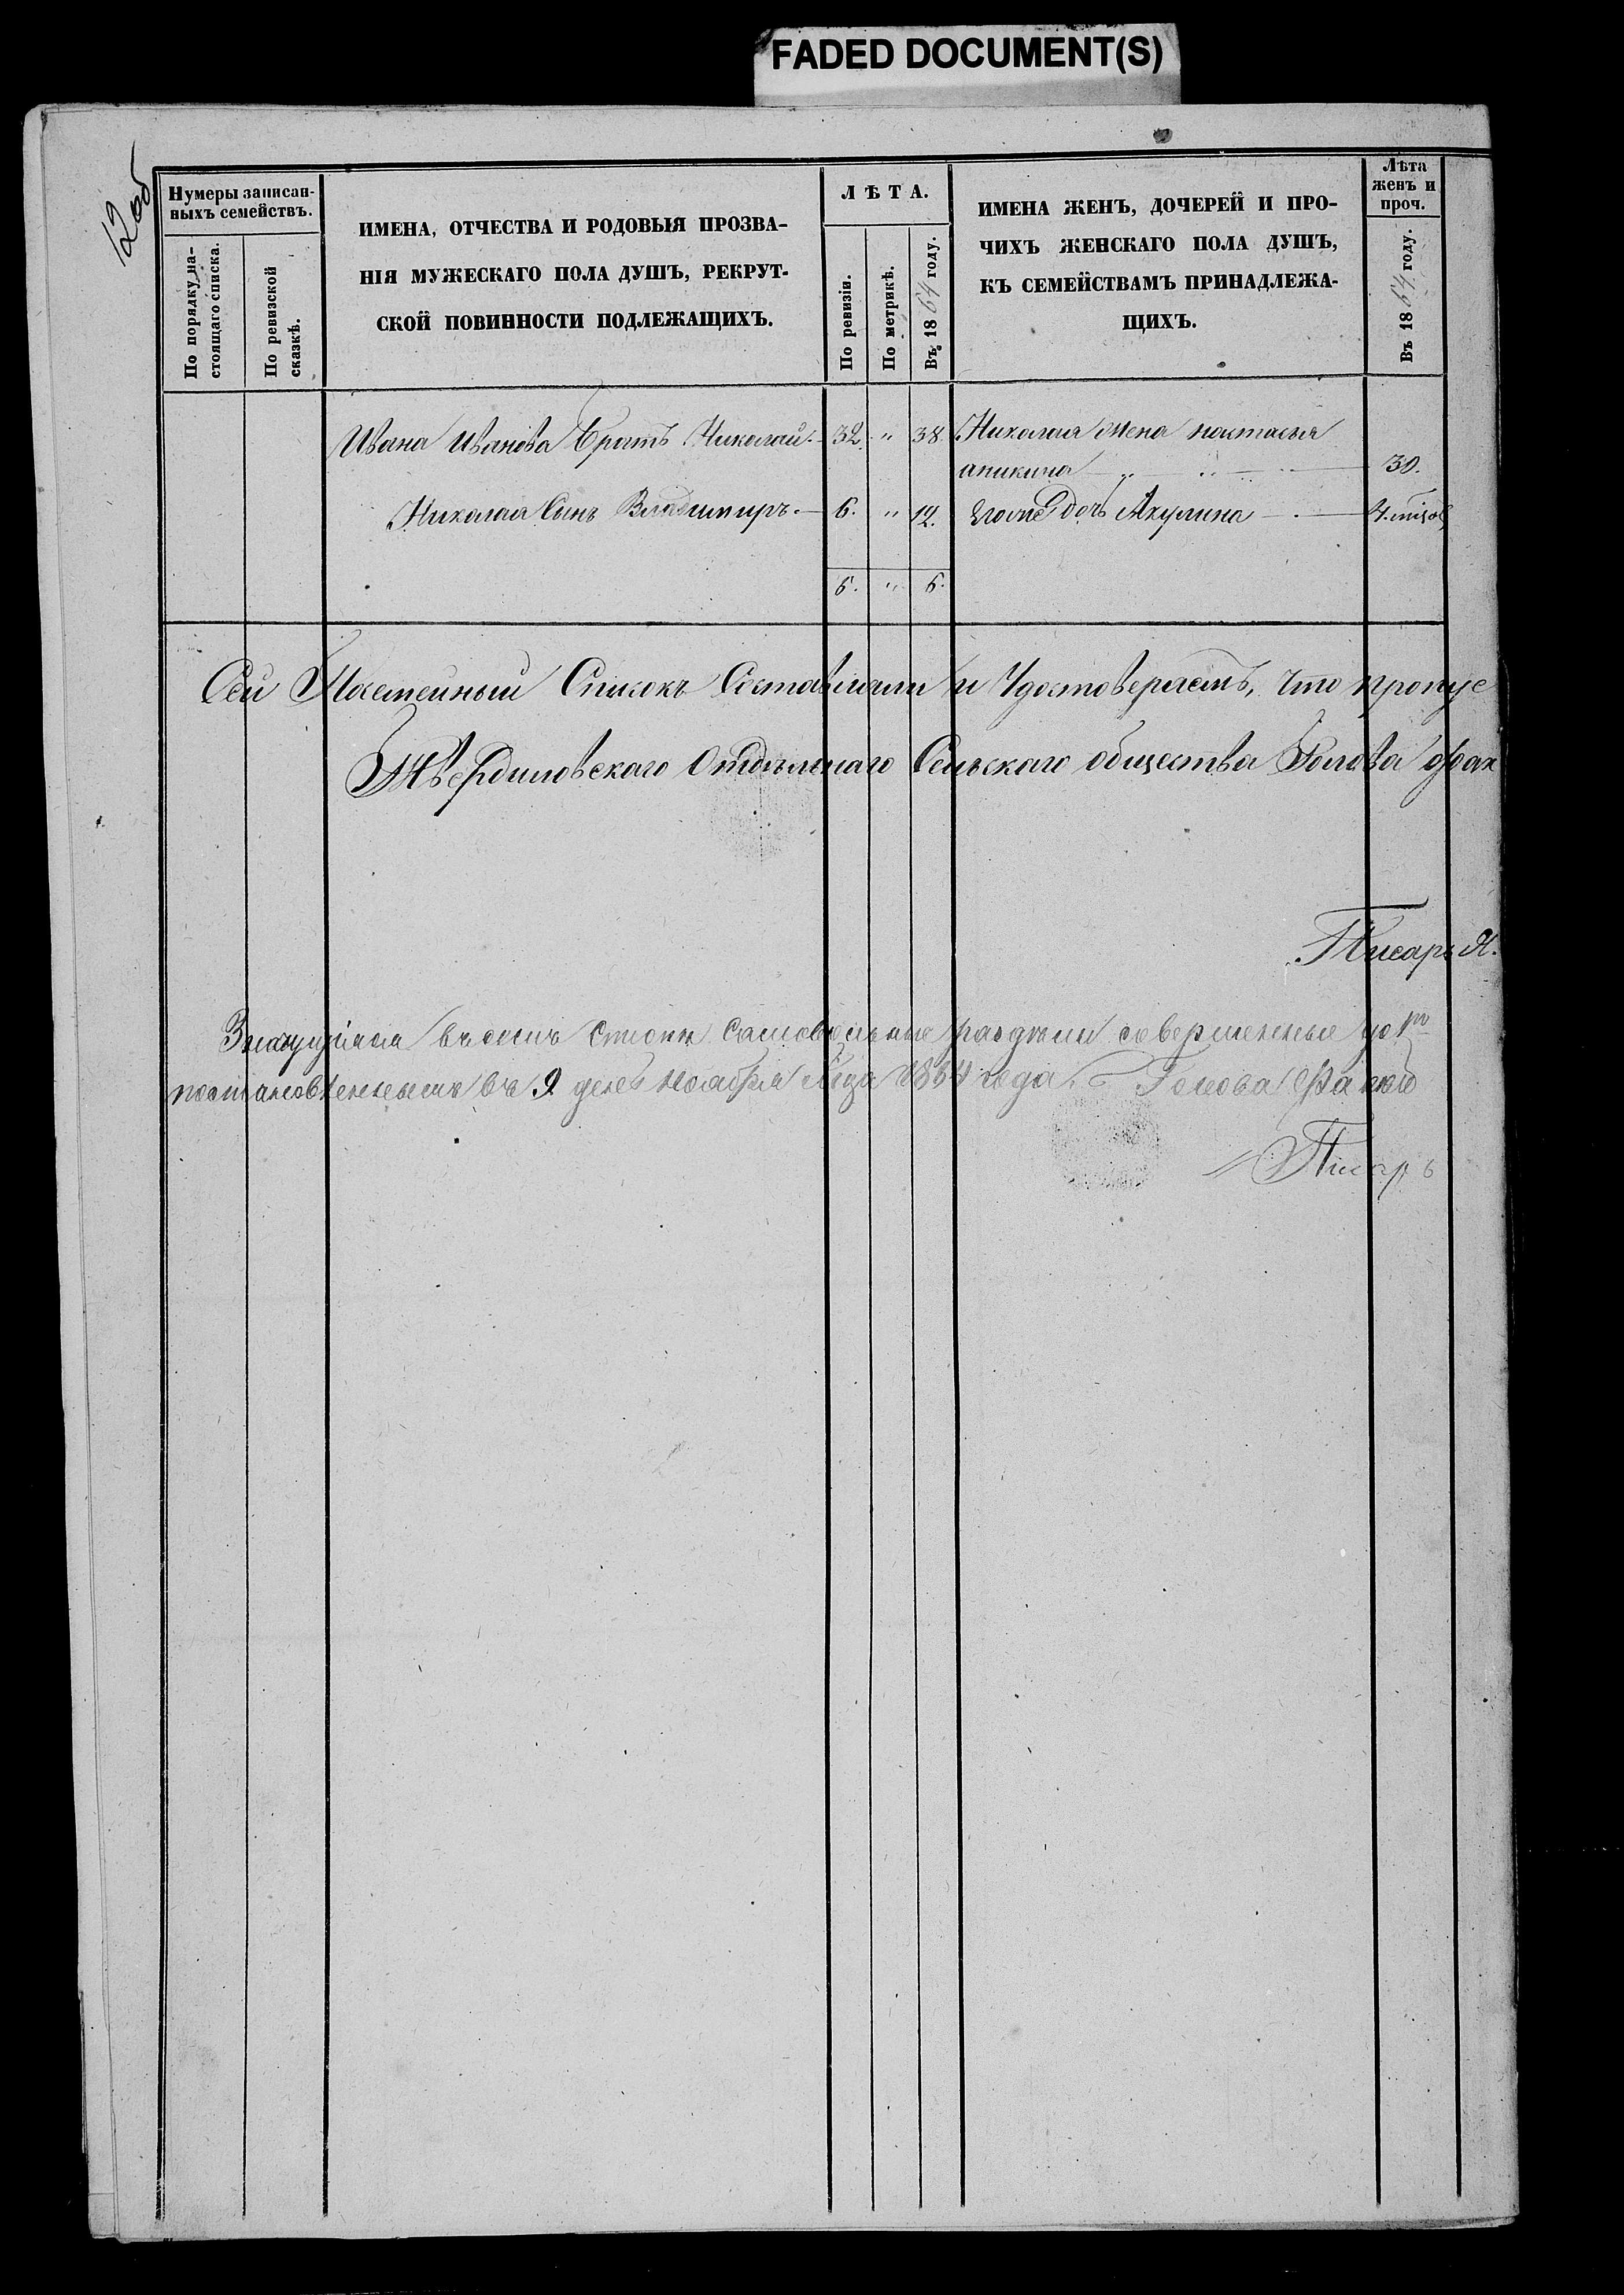 FADED DOCUMENT(S)
12об
Нумеры записан-
ныхъ семействъ.
По порядку на-
стоящаго списка.
По ревизской
сказкѣ.
ИМЕНА, ОТЧЕСТВА И РОДОВЫЯ ПРОЗВА-
НІЯ МУЖЕСКАГО ПОЛА ДУШЪ, РЕКРУТ-
СКОЙ ПОВИННОСТИ ПОДЛЕЖАЩИХЪ.
ЛѢТА.
По ревизіи.
По метрикѣ.
Въ 1864 году.
ИМЕНА ЖЕНЪ, ДОЧЕРЕЙ И ПРО-
ЧИХЪ ЖЕНСКАГО ПОЛА ДУШЪ,
КЪ СЕМЕЙСТВАМЪ ПРИНАДЛЕЖА-
ЩИХЪ.
Лѣта
женъ и
проч.
Въ 1864 году.
Ивана Иванова братъ Николай. 32. " 38. Николая жена настасья
аникина 30.
Николая Сынъ Владимиръ. 6. " 12. дочь Акулина 4.
6. " 6.
Сей Посемейный Списокъ Составляли и Удостоверяемъ, что пропус
Твердиловского Отдѣльнаго Сельскаго общества Голова
Писарь Я.
Значущіяся въ семъ списке самовольные разделы совершенные до
постановленнымъ въ 9 день ноября м҃ца 1864 года. Голова
Писарь